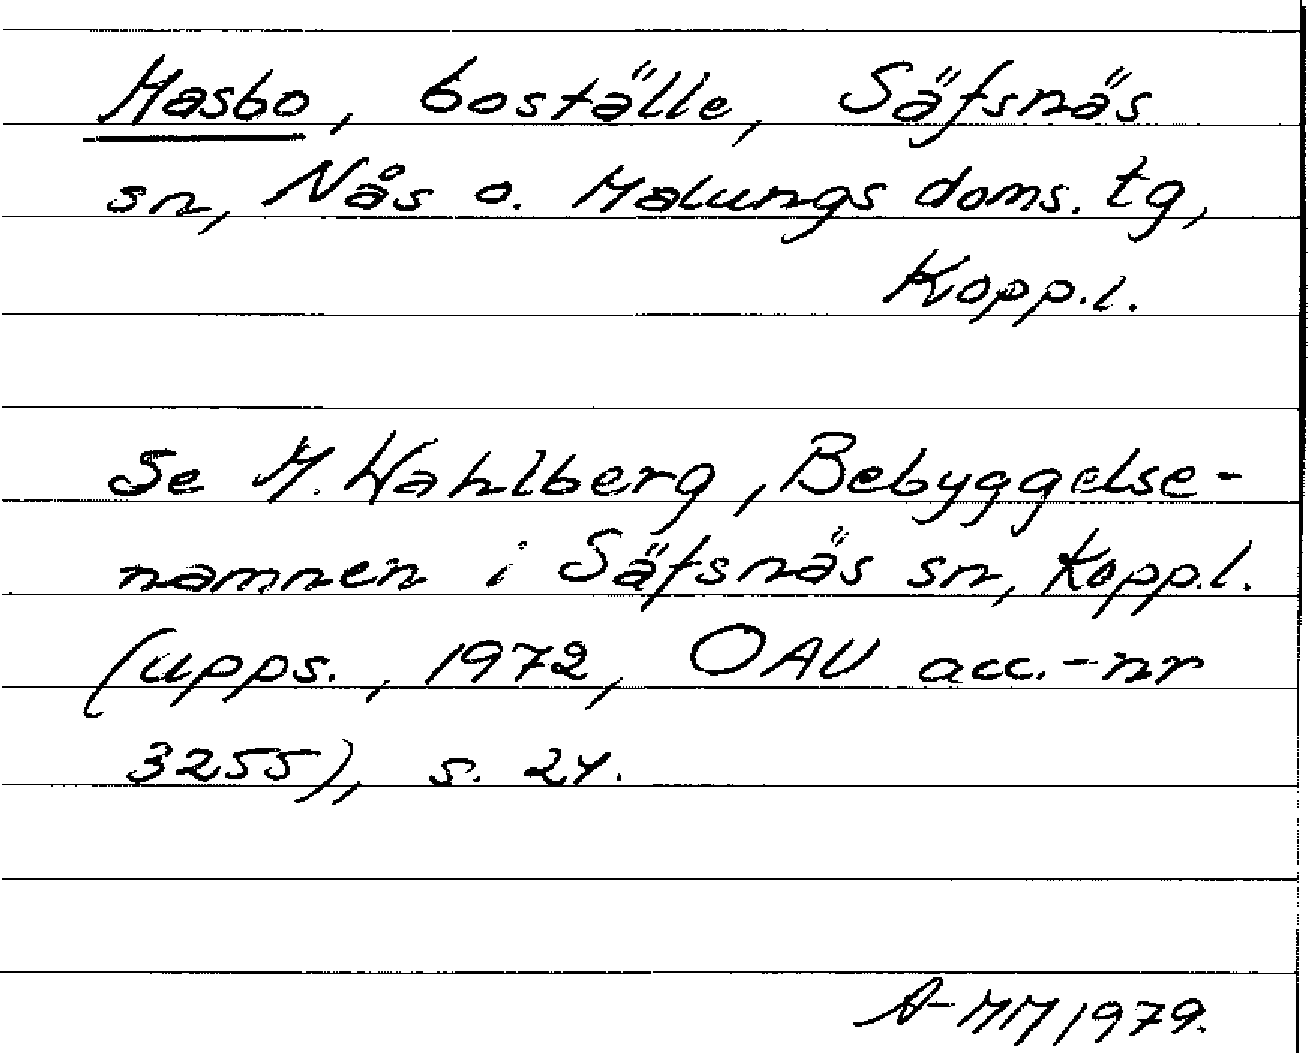 Masbo, boställe, Säfsnäs
sn, Nås o. Malungs doms. tg,
Kopp.l.
Se M. Wahlberg, Bebyggelse-
namnen i Säfsnäs sn, Kopp.l.
(Upps., 1972, OAU acc.-nr
3255), s. 24.
A-MM 1979.